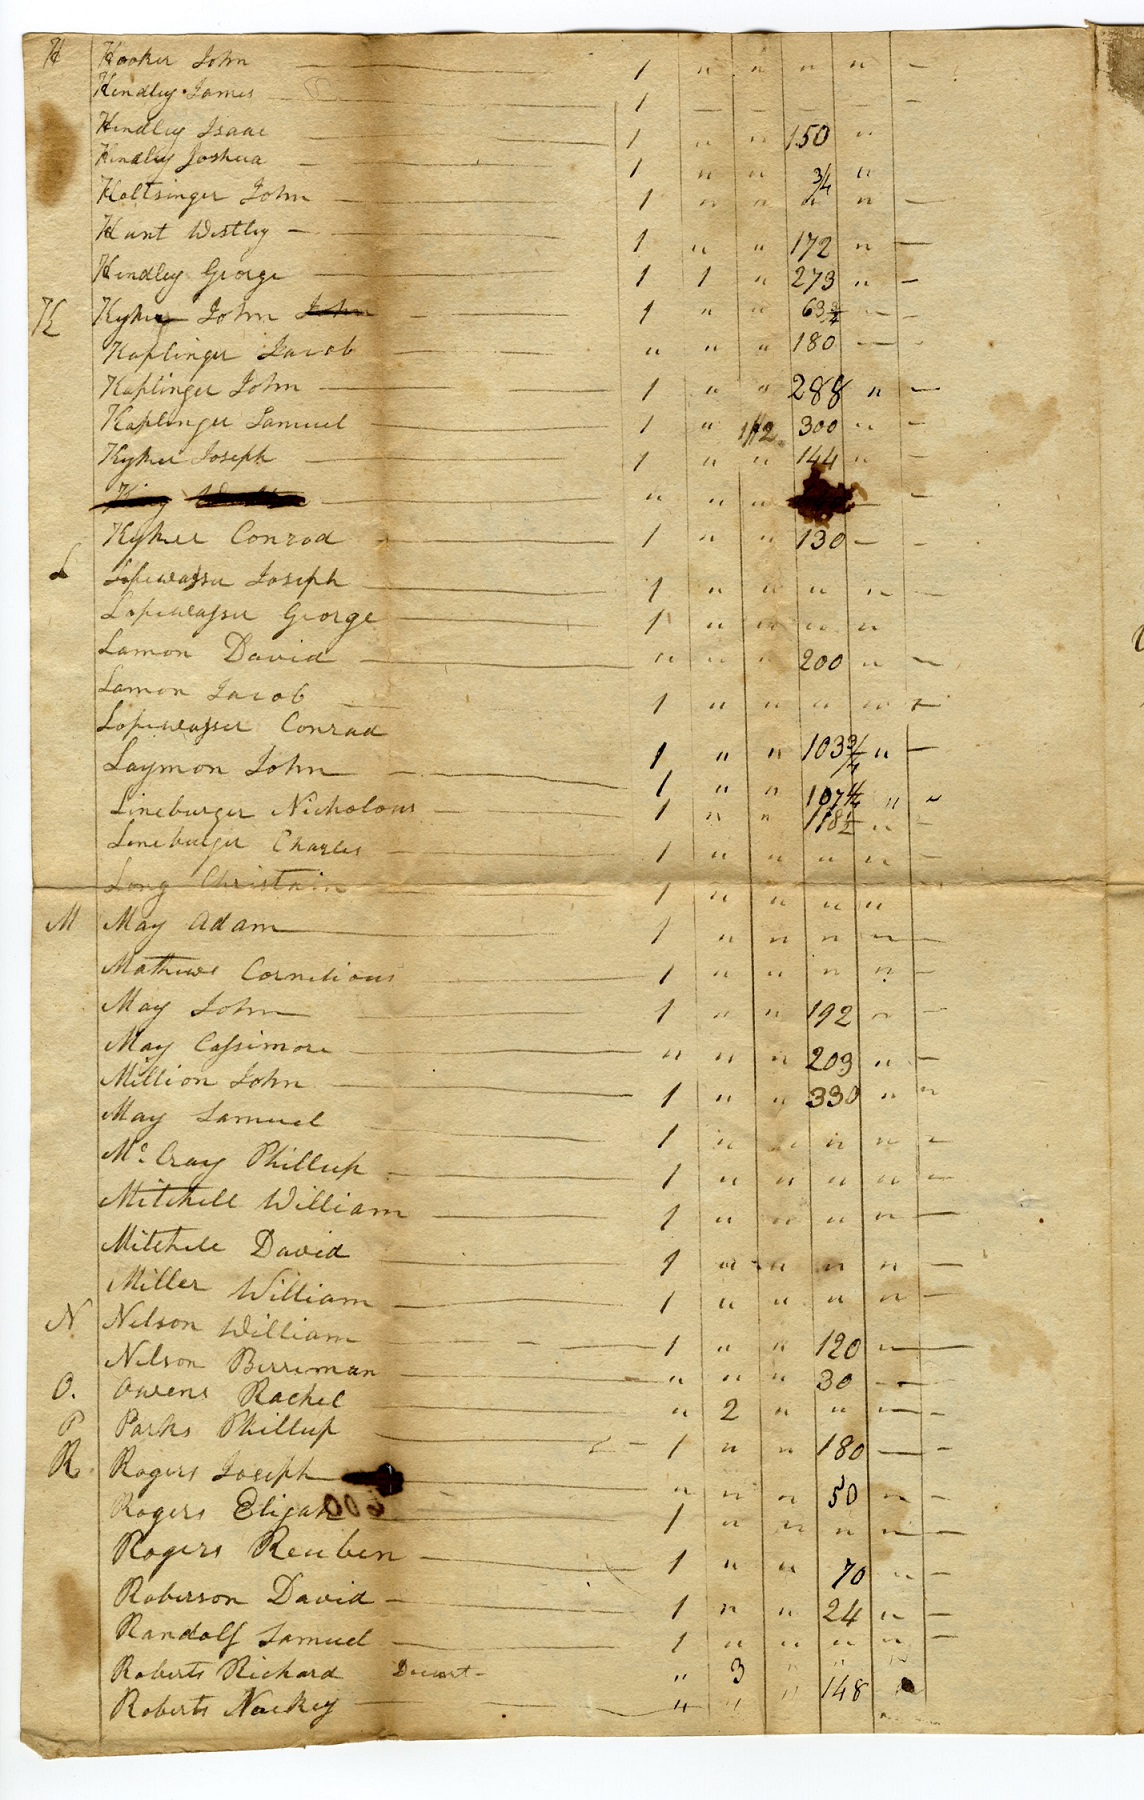 H Hooker John — 1 " " " " —
Hendley James — 1 — — — — —
Hendley Isaac — 1 " " 150 "
Hendley Joshua — 1 " " 3/4 "
Holtsinger John — 1 " " " " —
Hunt Westley — 1 " " 172 " —
Hendley George — 1 1 " 273 " —
K Kyker John John — 1 " " 63 3/4 " —
Kaplinger Jacob — " " " 180 — -
Kaplinger John — 1 " " 288 " —
Kaplinger Samuel — 1 " 300 " —
Kyker Joseph — 1 " " 144 " —
King — " " " —
Kyker Conrod — 1 " " 130 — -
L Lopewasser Joseph — 1 " " " " —
Lopewasser George — 1 " " " "
Lamon David — " " " 200 " —
Lamon Jacob 1 " " " " +
Lopewasser Conrad 1 " " 103 3/4 " —
Laymon John — 1 " " 107 "
Lineburger Nicholous — 1 " " 118 1/2 " —
Lineburger Charles — 1 " " " " —
Long Christain — 1 " " " "
M May Adam — 1 " " " " —
Mathews Cornelious — 1 " " " " —
May John — 1 " " 192 " —
May Cassimore — " " " 203 " —
Million John — 1 " " 330 " "
May Samuel — 1 " " " " —
Mc. Cray Phillup — 1 " " " " —
Mitchell William — 1 " " " " —
Mitchell David — 1 " " " " —
Miller William — 1 " " " " —
N Nelson William — 1 " " 120 " —
Nelson Berriman — " " " 30 — -
O. Owens Rachel — " 2 " " " -
P Parks Phillup — 1 " " 180 — -
R Rogers Joseph — " " " 50 " -
Rogers Elijah — 1 " " " " —
Rogers Reuben — 1 " " 70 " —
Roberson David — 1 " " 24 " —
Randolf Samuel — 1 " " " " —
Roberts Richard — " 3 " " "
Roberts Nackey — " " " 148